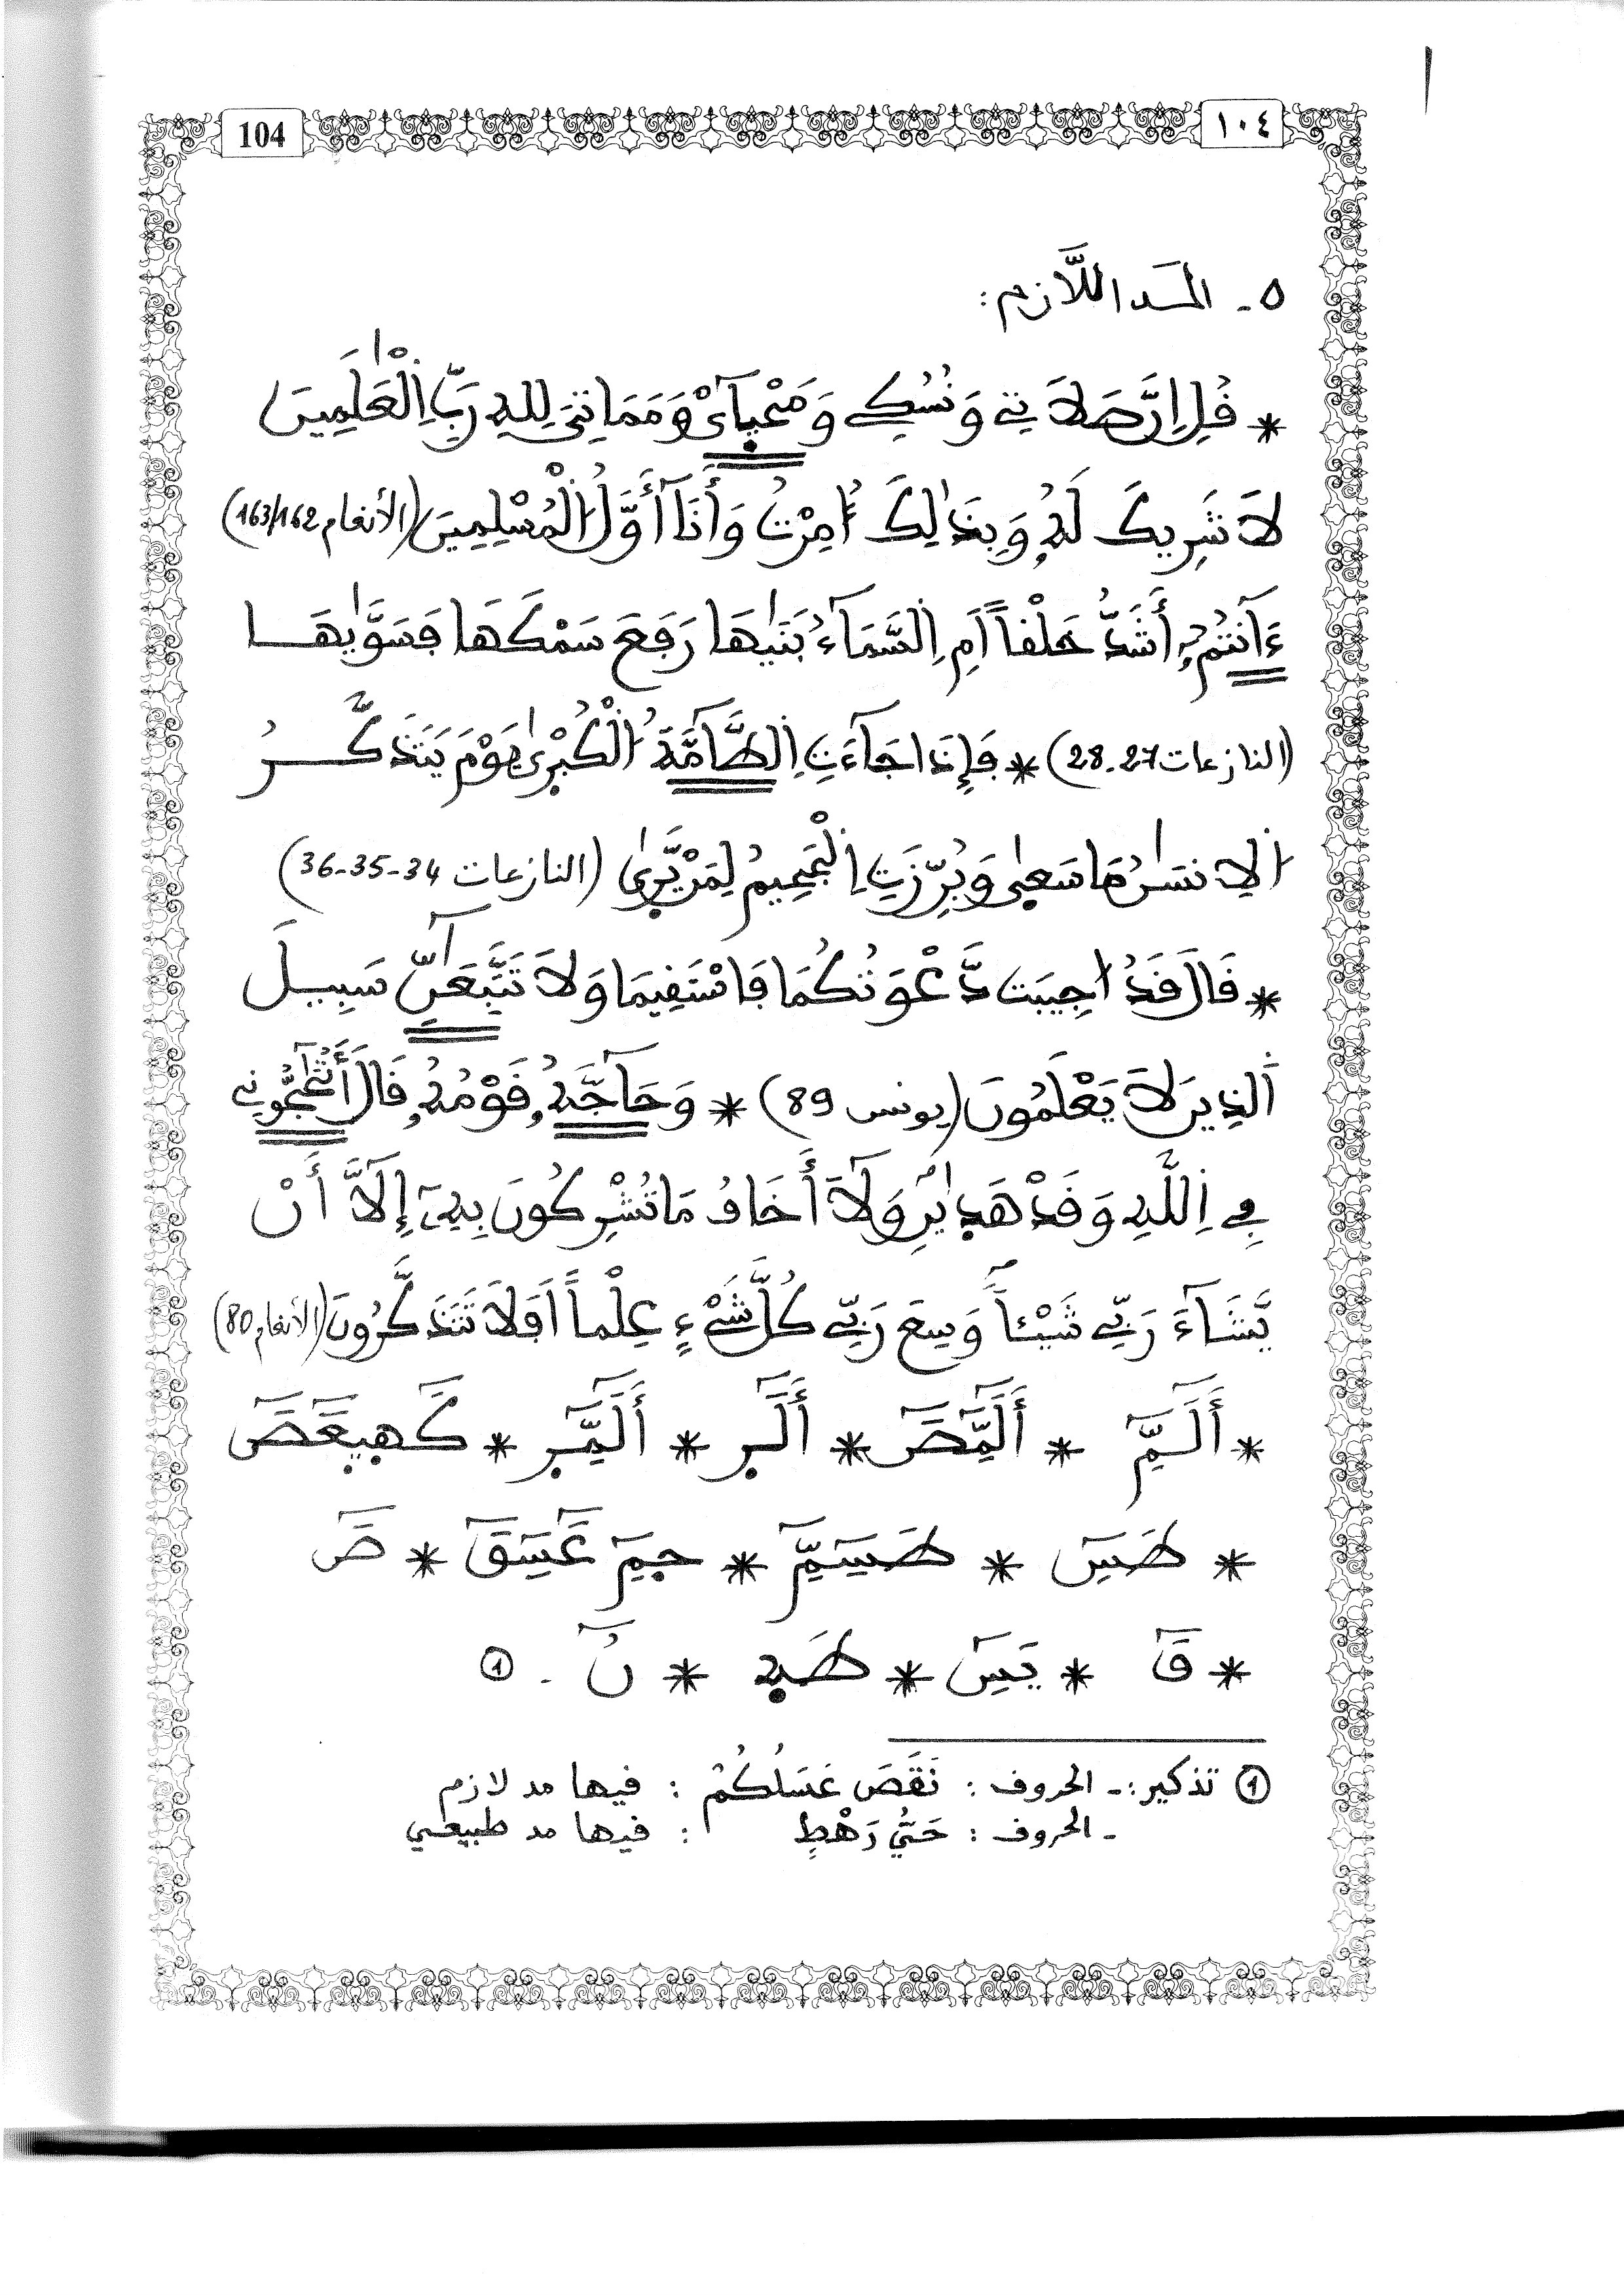 104 ١٠٤
٥ - المَد اللَّازم :
* قُلِ اِنَّ صَلَاتِي وَنُسُكِي وَمَحْيَآيْ وَمَمَاتِيَ لِلهِ رَبِّ اِلْعَٰلَمِينَ
لَا شَرِيكَ لَهُۥ وَبِذَٰلِكَ أُمِرْتُ وَأَنَآ أَوَّلُ اُلْمُسْلِمِينَ (الأنعام 163/162)
ءَآنتُمُۥٓ أَشَدُّ خَلْقاً اَمِ اِلسَّمَآءُ بَنَيٰهَا رَفَعَ سَمْكَهَا فَسَوَّيٰهَا
(النازعات 27-28) * فَإِذَا جَآءَتِ اِلطَّآمَّةُ اُلْكُبْرَىٰ يَوْمَ يَتَذَكَّرُ
اُلِانسَٰنُ مَا سَعَىٰ وَبُرِّزَتِ اِلْجَحِيمُ لِمَنْ يَّرَىٰ (النازعات 34-35-36)
* قَالَ قَدُ ا۟جِيبَت دَّعْوَتُكُمَا فَاسْتَقِيمَا وَلَا تَتَّبِعَآنِّ سَبِيلَ
اَلذِينَ لَا يَعْلَمُونَ (يونس 89) * وَحَآجَّهُۥ قَوْمُهُۥ قَالَ أَتُحَٰٓجُّونِي
فِي اِللَّهِ وَقَدْ هَدَيٰنِۦ وَلَآ أَخَافُ مَا تُشْرِكُونَ بِهِۦٓ إِلَّآ أَنْ
يَّشَآءَ رَبِّي شَيْـٔاً وَسِعَ رَبِّي كُلَّ شَيْءٍ عِلْماً اَفَلَا تَتَذَكَّرُونَ (الأنعام 80)
* أَلَٓمِّٓ * أَلَٓمِّٓصَٓ * أَلَٓر * أَلَٓمِّٓر * كَٓهيعَٓصَٓ
* طَسِٓ * طَسِٓمِّٓ * حمِٓ عَٓسِٓقَٓ * صَٓ
* قَٓ * يَسِٓ * طَهِ * نُٓ . ①
① تذكير : - الحروف : نَقَصَ عَسَلُكُمْ : فيها مد لازم
- الحروف : حَيٌّ رَهْطٍ : فيها مد طبيعي